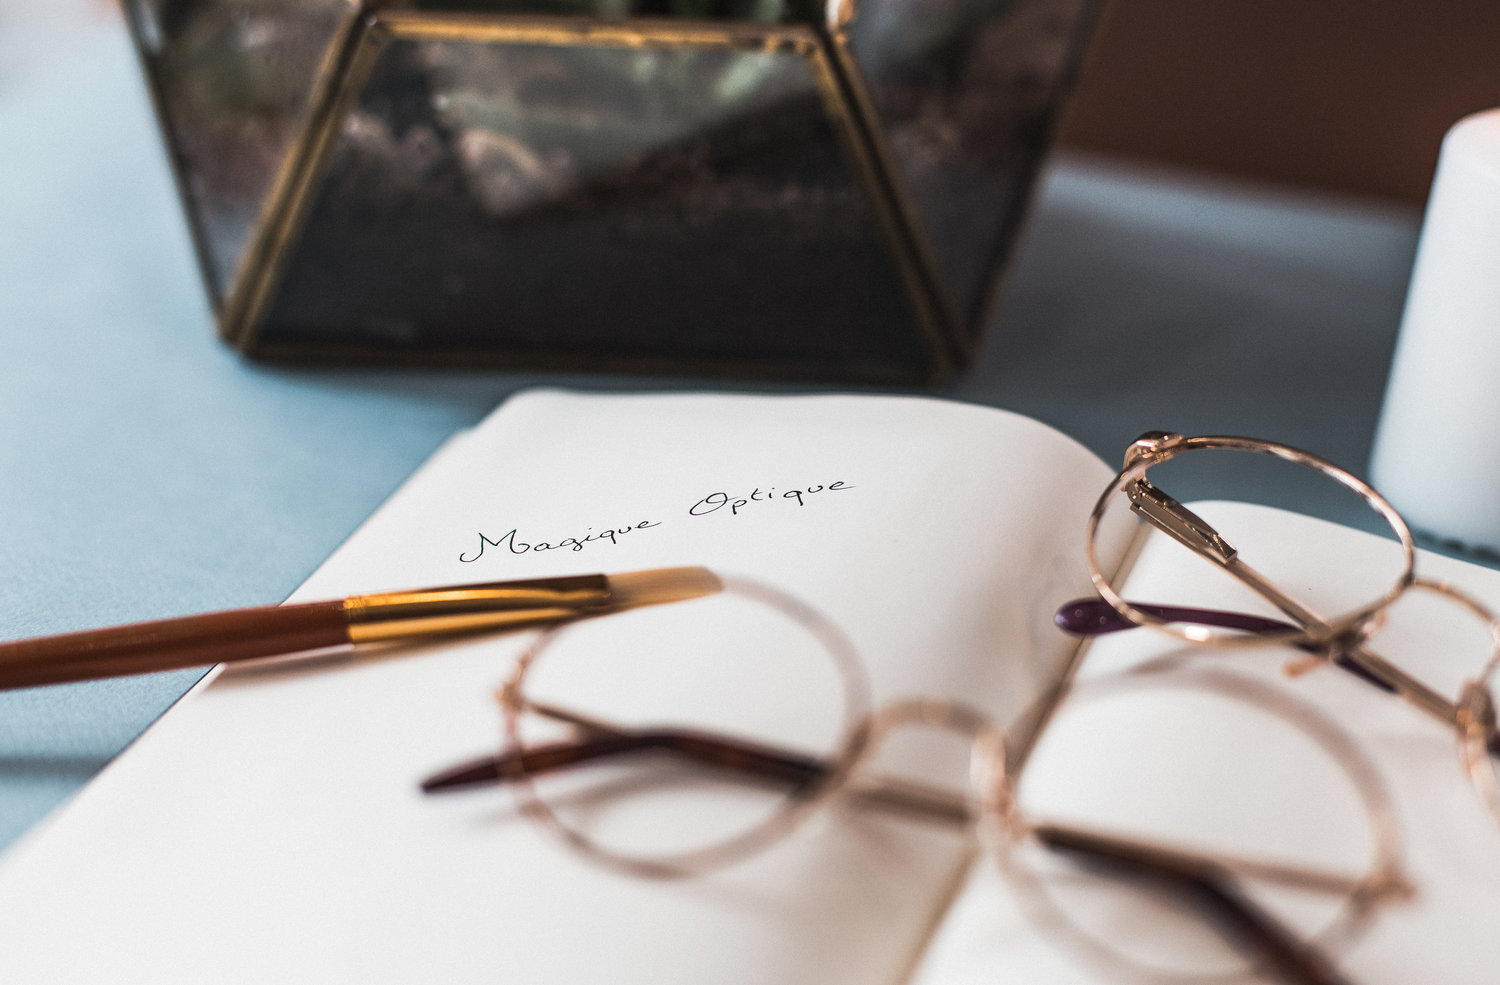 Magique Optique